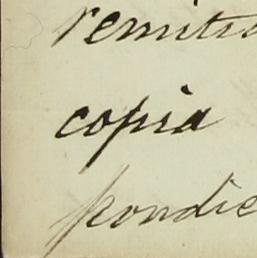 remitie
copia
pondie